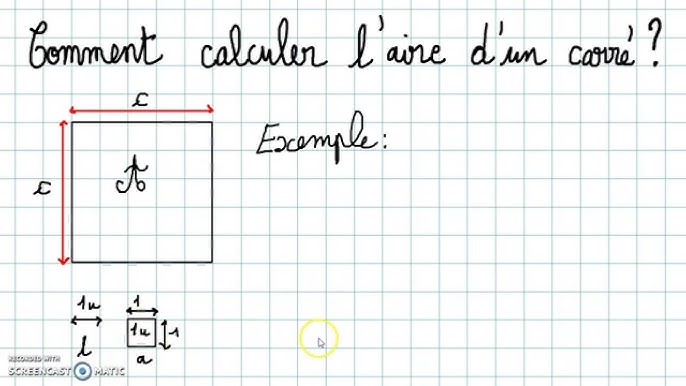 Comment calculer l'aire d'un carré ?
c
Exemple :
c
A
1u
1
1u
1
l
a
RECORDED WITH
SCREENCAST MATIC